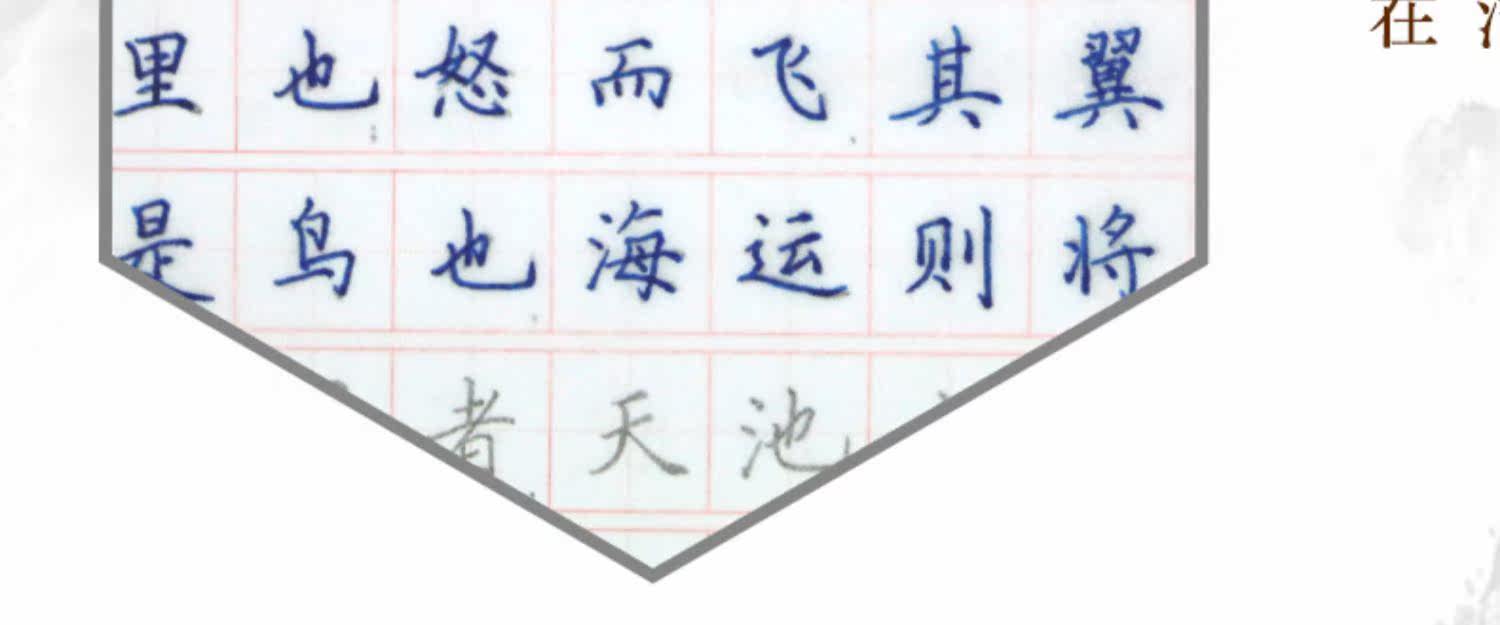 里也怒而飞其翼
是鸟也海运则将
者天池
在